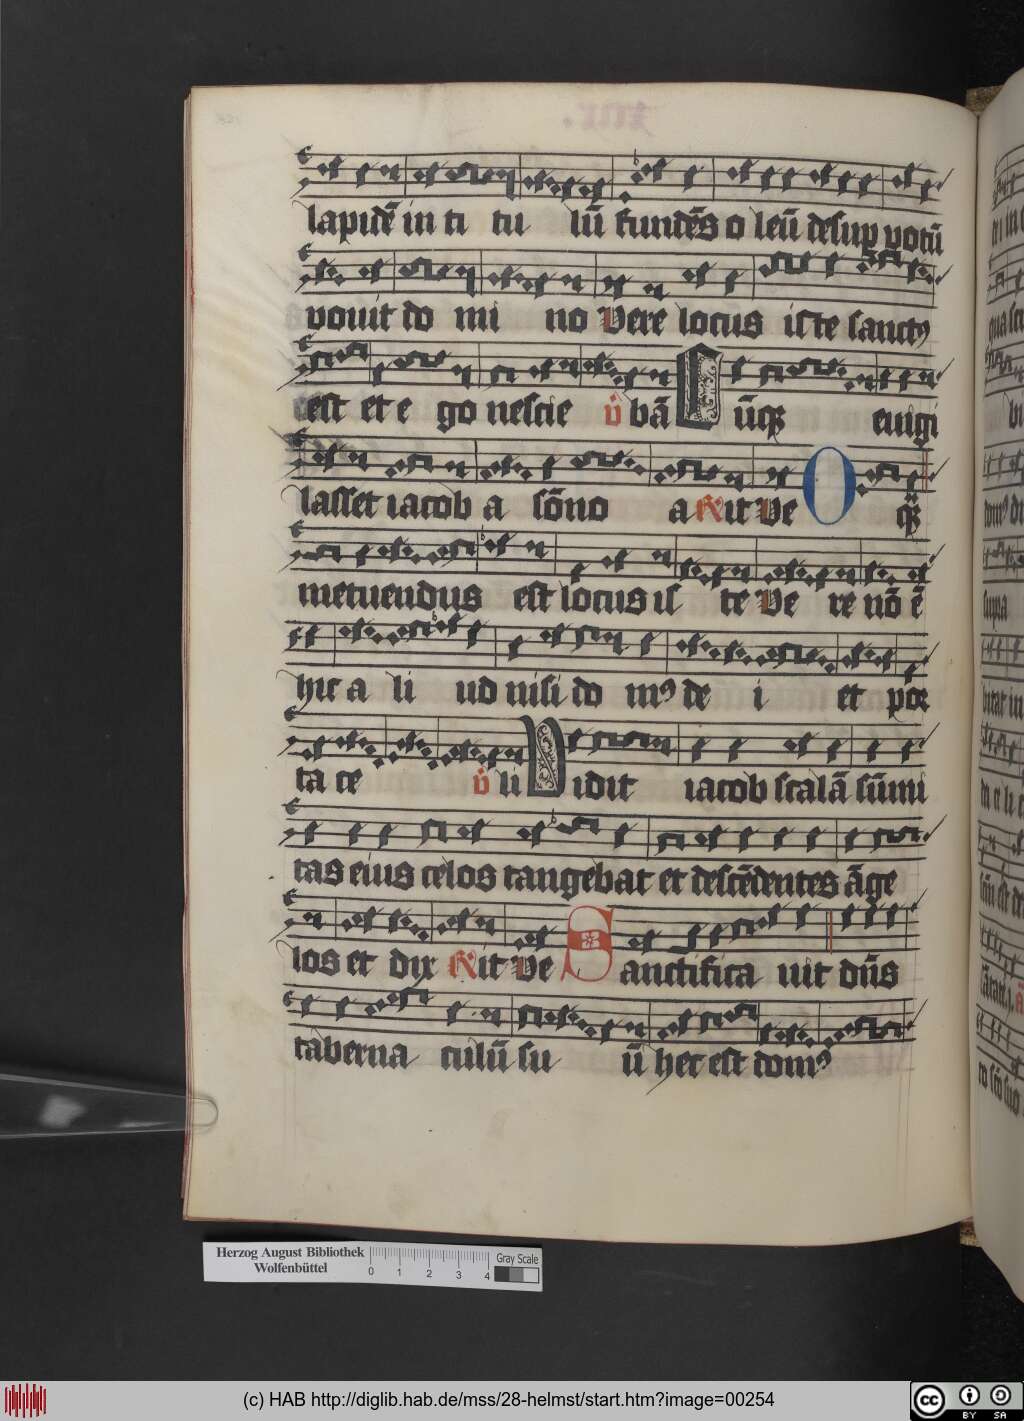 lapidē in ti tu lū fundēs oleū desup votū
vovit do mi no Vere locus iste sanctꝰ
est et e go nescie v̇ bā Cūqꝫ evigi
lasset iacob a sōno a Rit Ve O qꝫ
metuendus est locus is te Ve re nō ē
hic a li ud nisi do mꝰ de i et por
ta ce v̇ li Vidit iacob scalā sūmi
tas eius celos tangebat et descēdentes āge
los et dix Rit Ve Sanctifica uit dūs
taberna culū su ū hec est domꝰ
Herzog August Bibliothek
Wolfenbüttel
0 1 2 3 4
Gray Scale
(c) HAB http://diglib.hab.de/mss/28-helmst/start.htm?image=00254
cc BY SA